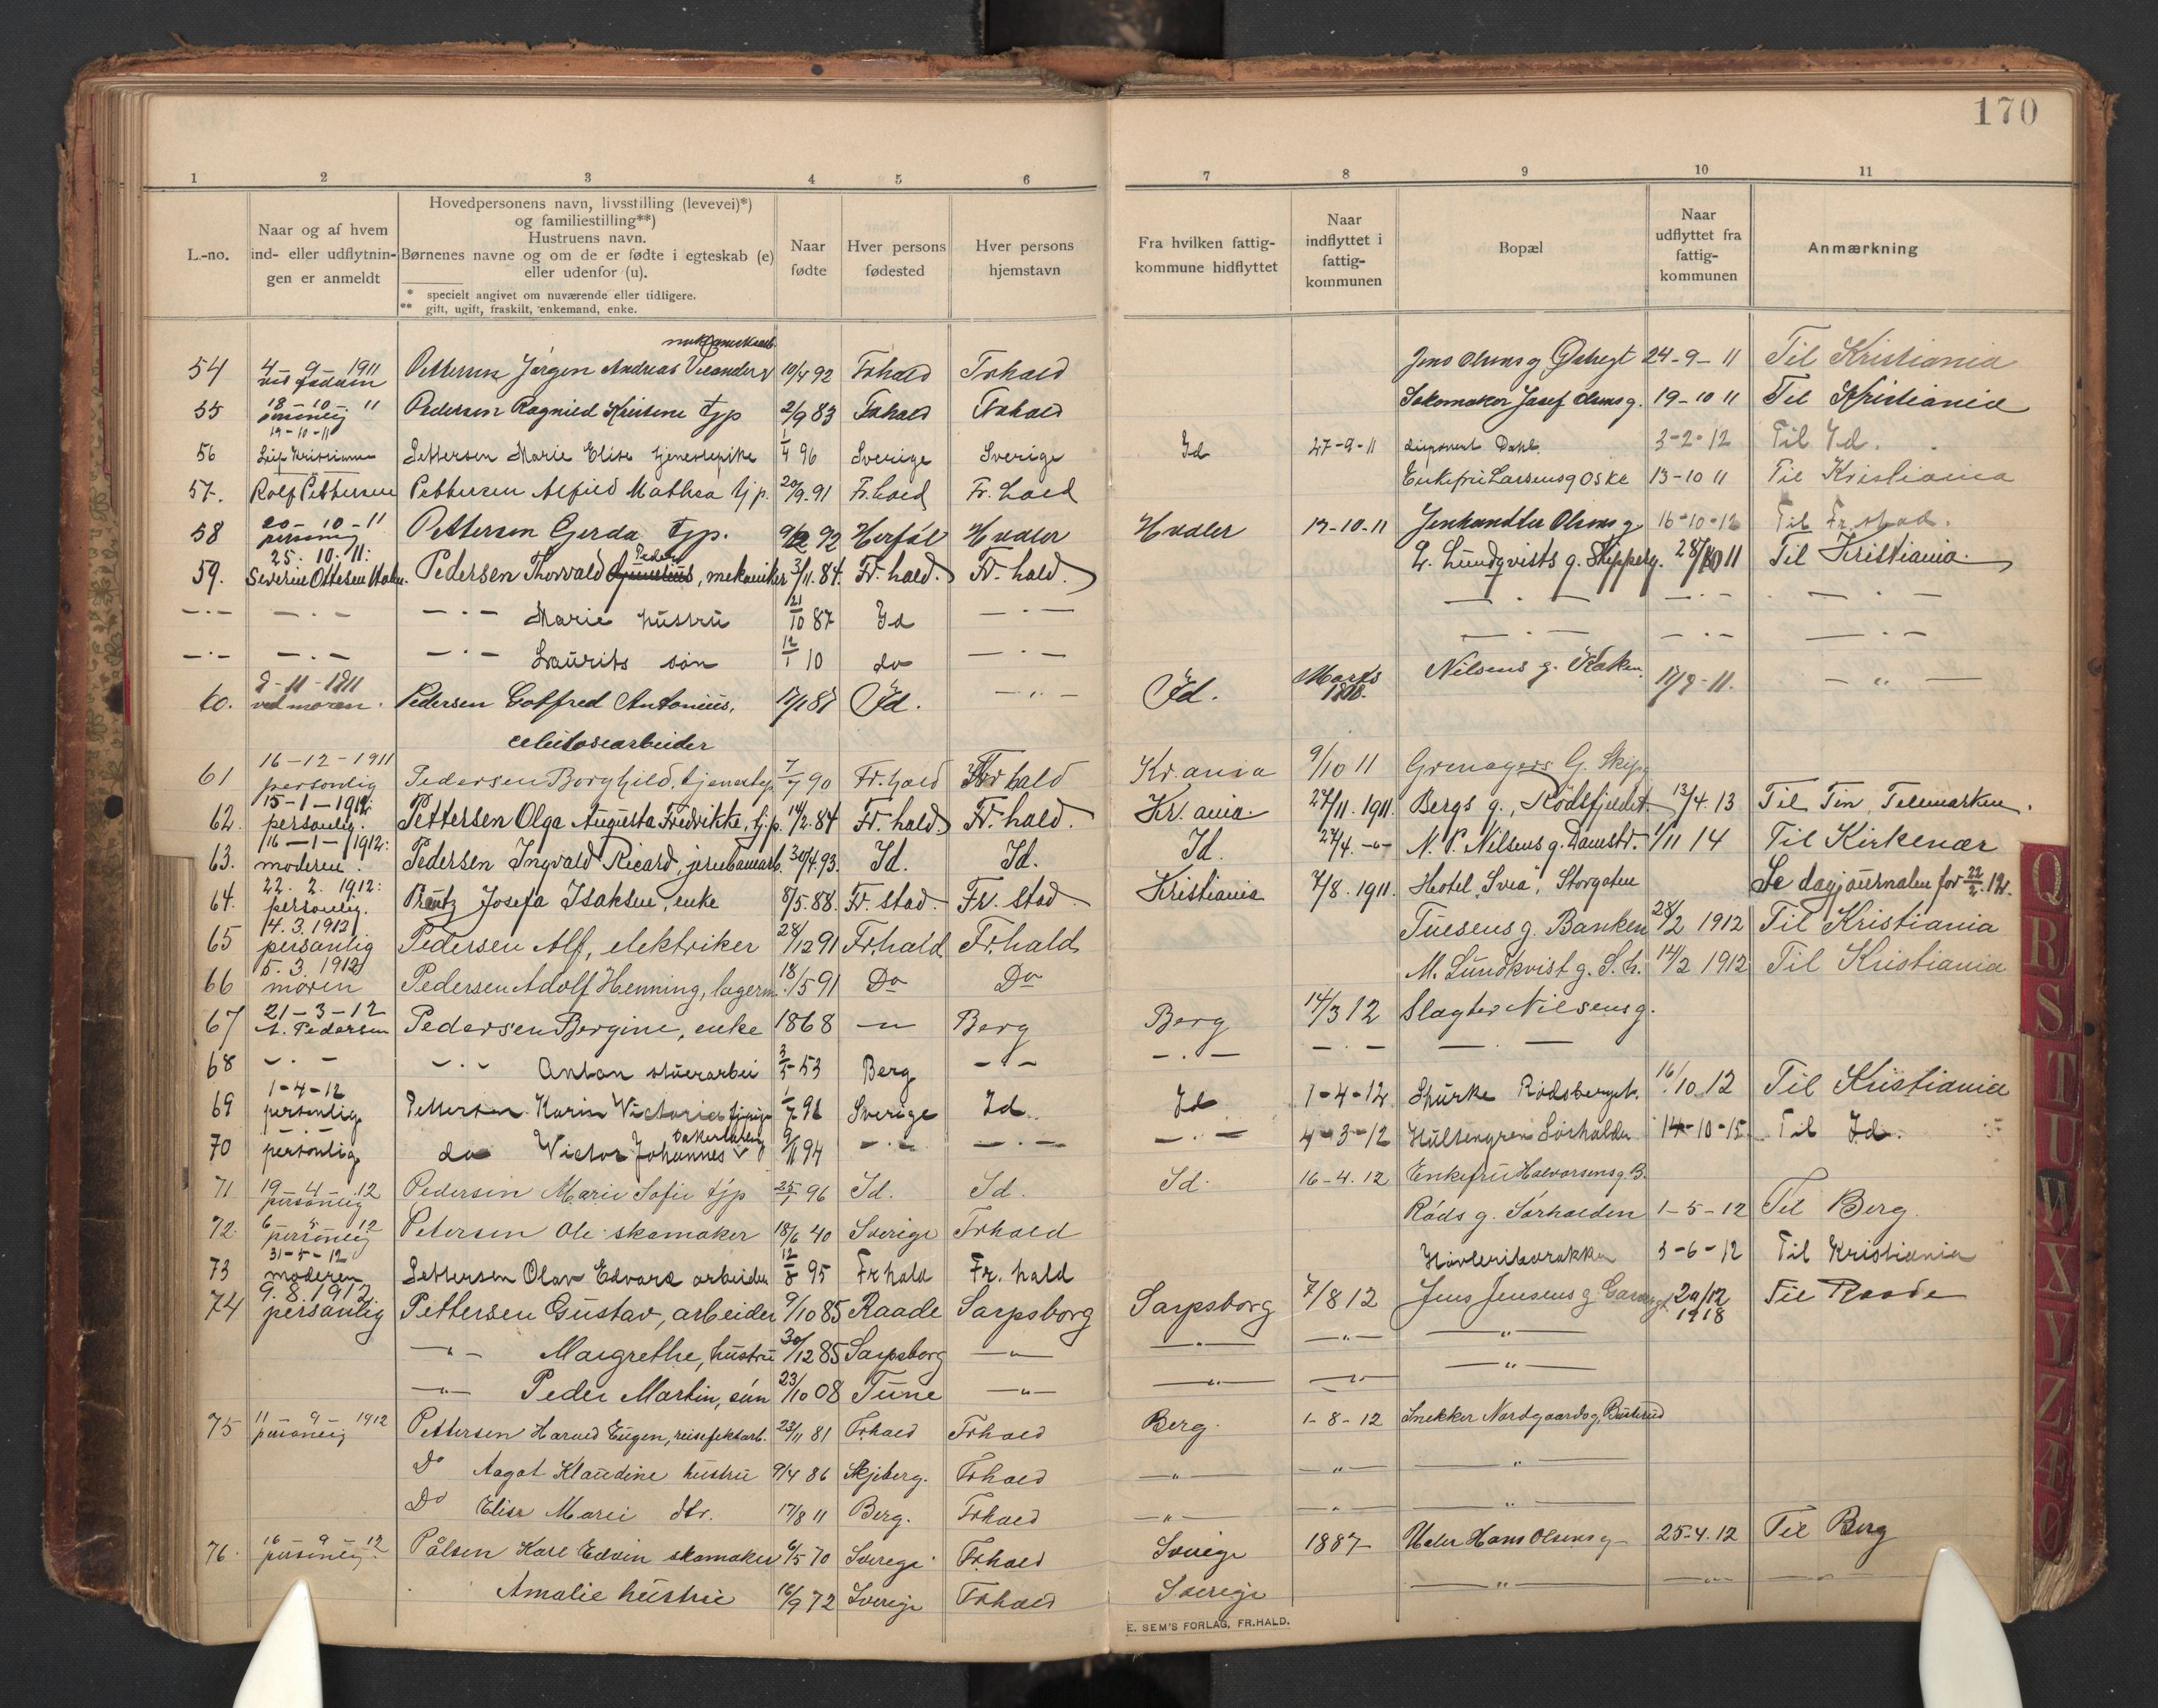 170
1 2 3 4 5 6 7 8 9 10 11
L.-no.
Naar og af hvem ind- eller udflytningen er anmeldt
Hovedpersonens navn, livsstilling (levevei)*)
og familiestilling**)
Hustruens navn.
Børnenes navne og om de er fødte i egteskab (e)
eller udenfor (u).
* specielt angivet om nuværende eller tidligere.
** gift, ugift, fraskilt, enkemand, enke.
Naar fødte
Hver persons fødested
Hver persons hjemstavn
Fra hvilken fattigkommune hidflyttet
Naar indflyttet i fattigkommunen
Bopæl
Naar udflyttet fra fattigkommunen
Anmærkning
54 4-9-1911 Pettersen Jørgen Andreas 10/4 92 Frhald Frhald Jens Olsens g 24-9-11 Til Kristiania
55 18-10-11 personlig Pedersen Ragnild Kristine tjp 2/9 83 Frhald Frhald Skomaker Josef Olsens g. 19-10 11 Til Kristiania
56 19-10-11 Leif Kristiansen Pettersen Marie Elise tjenestepike 1/4 96 Sverige Sverige Id 27-9-11 Dahl. 3-2-12 Til Id.
57. Rolf Pettersen Pettersen Alfild Mathea tjp. 20/9.91 Fr.hald Fr.hald Enkefru Larsens g Oske 13-10 11 Til Kristiania
58 20-10-11 personlig Pettersen Gerda tjp. 9/12 92 Herføl Hvaler Hvaler 17-10-11 Jernhandler Olsens g 16-10-12 Til Fr.stad.
59. 25.10.11: Severine Ottesen Pedersen Thorvald Peder, mekaniker 3/11.84. Fr.hald. Fr.hald. L. Lundqvists g. Skipperg. 28/10 11 Til Kristiania.
—·— —·— —·— Marie hustru 21/10 87 Id —·— —·— —·— —·—
—·— —·— —·— Laurits søn 12/1 10 do —·— —·— —·— —·—
60. 8-11-1911 ved moren. Pedersen Gotfred Antonius, 17/1 87 Id. —„— Id. Marts 1888. Nilsens g. Kaken. 17/9-11. —„—
celulosearbeider
61 16-12-1911 personlig Pedersen Borghild, tjenestep. 7/7 90 Fr.hald Fr hald Kr.ania 9/10 11 Grenagers G. Skipg
62. 15-1-1912: personlig. Pettersen Olga Augusta Fredrikke, tj.p. 14/2.84 Fr.hald Fr.hald. Kr.ania. 24/11.1911. Bergs g., Rødsfjeldet 13/4.13 Til Tin, Telemarken.
63. 16-1-1912: moderen. Pedersen Ingvald Ricard, jernbanearb. 30/4.93. Id. Id. Id. 24/4. -„- N. P. Nilsens g. Damstr. 1/11 14 Til Kirkenær
64. 22.2.1912: personlig. Prøutz Josefa Isaksen, enke 8/5.88. Fr.stad. Fr.stad. Kristiania 7/8.1911. Hotel „Svea“, Storgaten Se dagjournalen for 22/2.12.
65 14.3.1912 personlig Pedersen Alf, elektriker 28/12 91 Fr.hald Fr.hald Tuesens g. Banken 28/2 1912 Til Kristiania
66 15.3.1912 moren Pedersen Adolf Henning, lagerm. 18/5 91 Do Do M. Lundkvist g. S.h. 14/2 1912 Til Kristiania
67 21-3-12 A. Pedersen Pedersen Bergine, enke 1868 —„— Berg Berg 14/3 12 Slagter Nilsens g.
68 —·— —·— Anton stuerarbei 3/5 53 Berg —„— —·— —·— —·—
69 1-4-12 personlig Pettersen Karin Victoria tjpige 1/7 96 Sverige Id. Id 1-4-12 Sturke Rødsberget. 16/10.12 Til Kristiania
70 —·— personlig do Victor Johannes bakerlærling 9/11 94 —·— —·— —·— 4-3-12 Hultengren Sørhalden 14-10-15 Til Id.
71 19-4-12 personlig Pedersen Marie Sofie tjp 25/1 96 Id. Id. Id. 16-4.12 Enkefru Halvorsens g. B.
72. 6-5-12 personlig Petersen Ole skomaker 18/6 40 Sverige Frhald Røds g. Sørhalden 1-5-12 Til Berg.
73 31-5-12 moderen Pettersen Olav Edvard arbeider 12/8 95 Frhald Fr. hald Høvleribarakken 3-6-12 Til Kristiania
74 9.8.1912 personlig Pettersen Gustav, arbeider 9/10 85 Raade Sarpsborg Sarpsborg 7/8 12 Jens Jensens g 20/12 1918 Til Raade
—„— Margrethe, hustru 30/12 85 Sarpsborg —„— —„— —„— —„—
—„— Peder Martin, søn 23/10 08 Tune —„— —„— —„— —„—
75 11-9-1912 personlig Pettersen Harald Eugen, reisefektarb. 23/11 81 Frhald Frhald Berg. 1-8-12 Snekker Nordgaards g, Busterud
Do Aagot Klaudine hustru 9/4 86 Skjeberg. Frhald —„— —„— —„—
Do Elise Marie dtr. 17/8 11 Berg. Frhald —„— —„— —„—
76. 16-9-12 personlig. Pålsen Karl Edvin skomaker 6/5 70 Sverige Frhald Sverige 1887 Maler Hans Olsens g 25-4.12 Til Berg
Amalie hustru 16/9 72 Sverige Frhald Sverige —„— —„— —„—
E. SEM'S FORLAG, FR.HALD.
Q
R
S
T
U
W
X
Y
Z
Æ
Ø